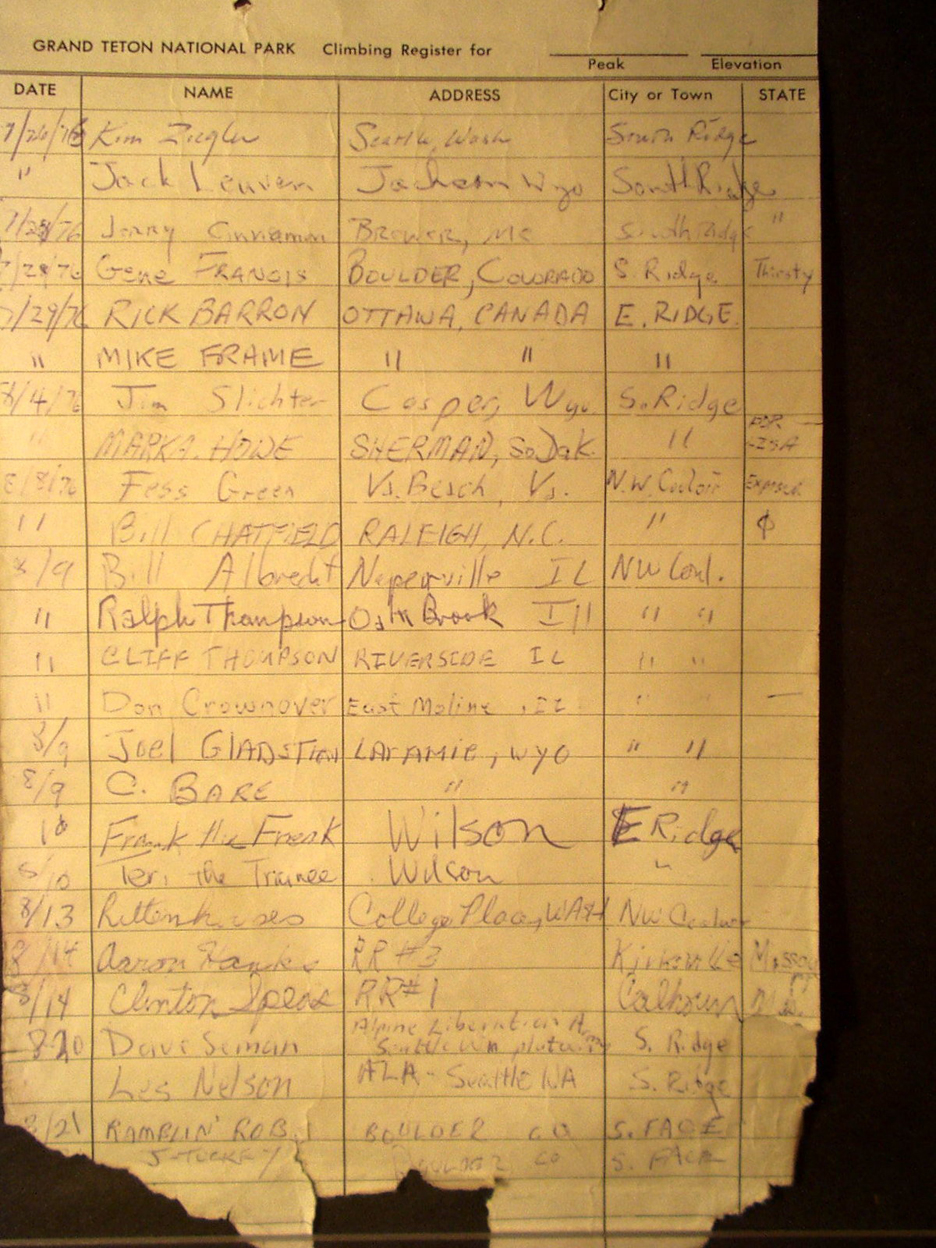 GRAND TETON NATIONAL PARK Climbing Register for
Peak Elevation
DATE NAME ADDRESS City or Town STATE
7/26/76 Kim Ziegler Seattle, Wash South Ridge
" Jack Jackson Wyo South Ridge
7/28/76 Jerry Cinnamon Brewer, Me South Ridge "
7/28/76 Gene FRANCIS BOULDER, COLORADO S. Ridge Thirsty
7/29/76 RICK BARRON OTTAWA, CANADA E. RIDGE
" MIKE FRAME " " "
8/4/76 Jim Slichter Casper, Wyo. S. Ridge
" MARK A. HOWE SHERMAN, So Dak. " FOR LISA
8/8/76 Fess Green Va. Beach, Va. N.W. Couloir
" Bill CHATFIELD RALEIGH, N.C. "
8/9 Bill Albrecht Naperville IL NW Coul.
" Ralph Thompson Oak Brook Ill " "
" CLIFF THOMPSON RIVERSIDE IL " "
" Don Crownover East Moline, IL " —
8/9 Joel LARAMIE, WYO " "
8/9 C. BARE " "
10 Frank the Freak Wilson E Ridge
8/10 Teri the Trainee Wilson "
8/13 Rittenhouses College Place, WASH NW
8/14 Aaron RR #3 Kirksville
8/14 Clinton Spear RR#1 Calhoun
8 20 Dave Seman Alpine Liberation Army
Seattle S. Ridge
Les Nelson ALA - Seattle WA S. Ridge
8/21 RAMBLIN' ROB BOULDER CO S. FACE
J. TUCKEY BOULDER CO S. FACE